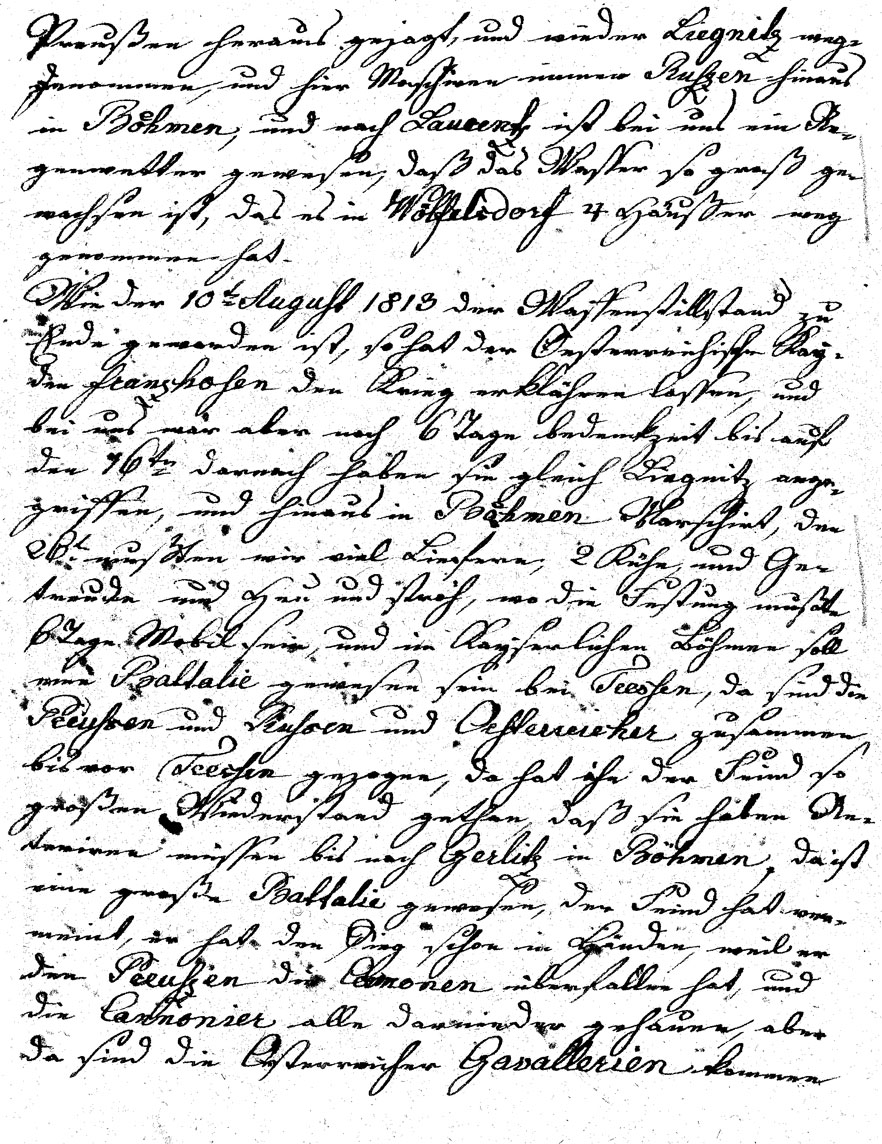 Preußen heraus gejagt, und wieder Liegnitz weg-
genommen, und hier Maschiren immer Rußen hinaus
in Böhmen, und nach Laurentz ist bei uns ein Re-
genwetter gewesen, daß das Wasser so groß ge-
wachsen ist, das es in Wölfelsdorf 4 Häußer weg
genommen hat.
Wie der 10t August 1813 der Waffenstillstand zu
Ende geworden ist, so hat der Oesterreichische Kay-
den Franzhosen den Krieg erklähren lassen, und
bei uns war aber noch 6 Tage bedenkzeit bis auf
den 16tn darnach haben sie gleich Liegnitz ange-
griffen, und hinaus in Böhmen Marschirt, den
26t mußten wir viel Liefern, 2 Kühe, und Ge-
treude und Heu und stroh, wo die Festung mußte
6 Tage Mobil sein, und im Kayserlichen Böhmen soll
eine Baltalie gewesen sein bei Treesen, da sind die
Preussen und Russen und Oesterreicher zusammen
bis vor Treesen gezogen, da hat ihn der Feind so
großen Wiederstand gethan, daß sie haben Re-
teriren müssen bis nach Gerlitz in Böhmen, da ist
eine große Baltalie gewesen, der Feind hat ver-
meint, er hat den Sieg schon in Händen, weil er
den Preußen die Canonen überfallen hat, und
die Cannonier alle darnieder gehauen, aber
da sind die Oesterreicher Gavallerien kommen